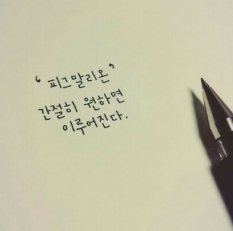 “피그말리온”
간절히 원하면
이루어진다.